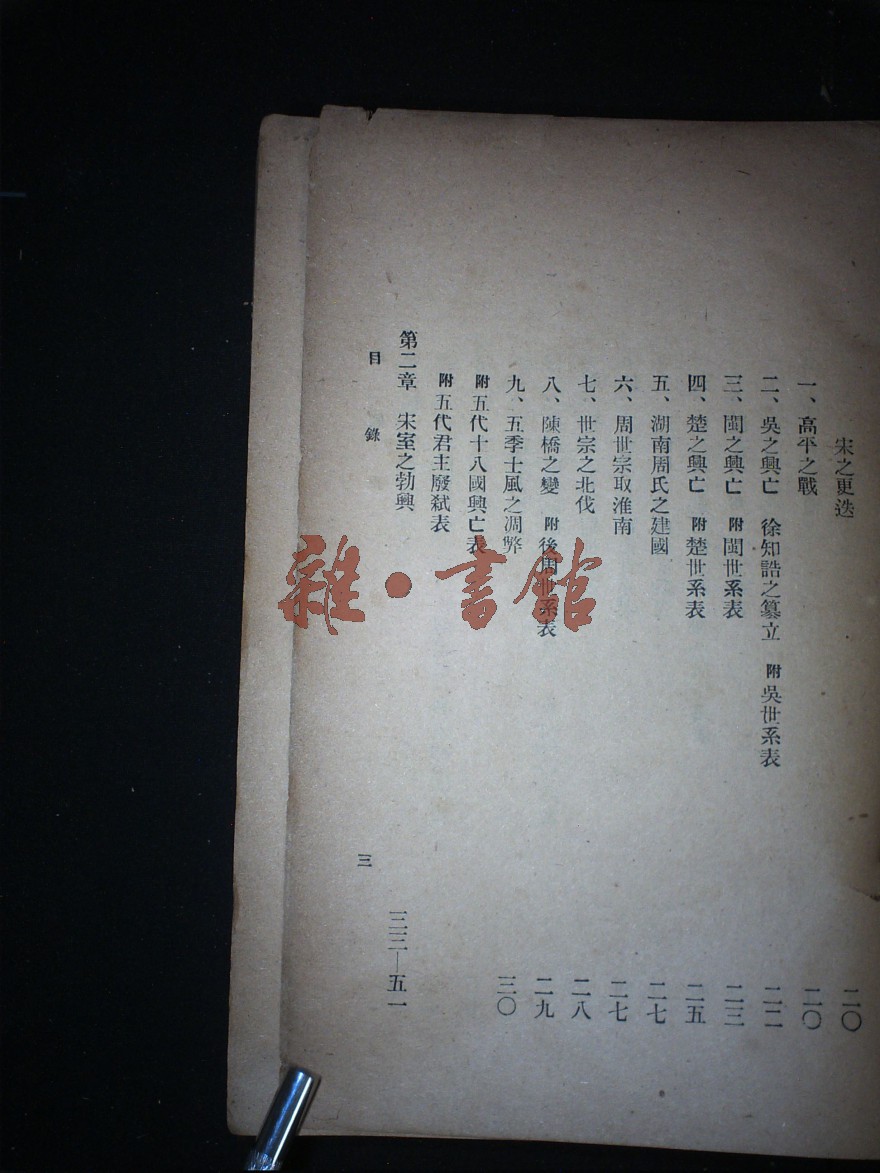 宋之更迭 二〇
一、高平之戰 二〇
二、吳之興亡 徐知誥之篡立 附吳世系表 二二
三、閩之興亡 附閩世系表 二三
四、楚之興亡 附楚世系表 二五
五、湖南周氏之建國 二七
六、周世宗取淮南 二七
七、世宗之北伐 二八
八、陳橋之變 附後周世系表 二九
九、五季士風之凋弊 三〇
附五代十八國興亡表
附五代君主廢弒表
第二章 宋室之勃興 三三—五一
目錄 三
雜·書館